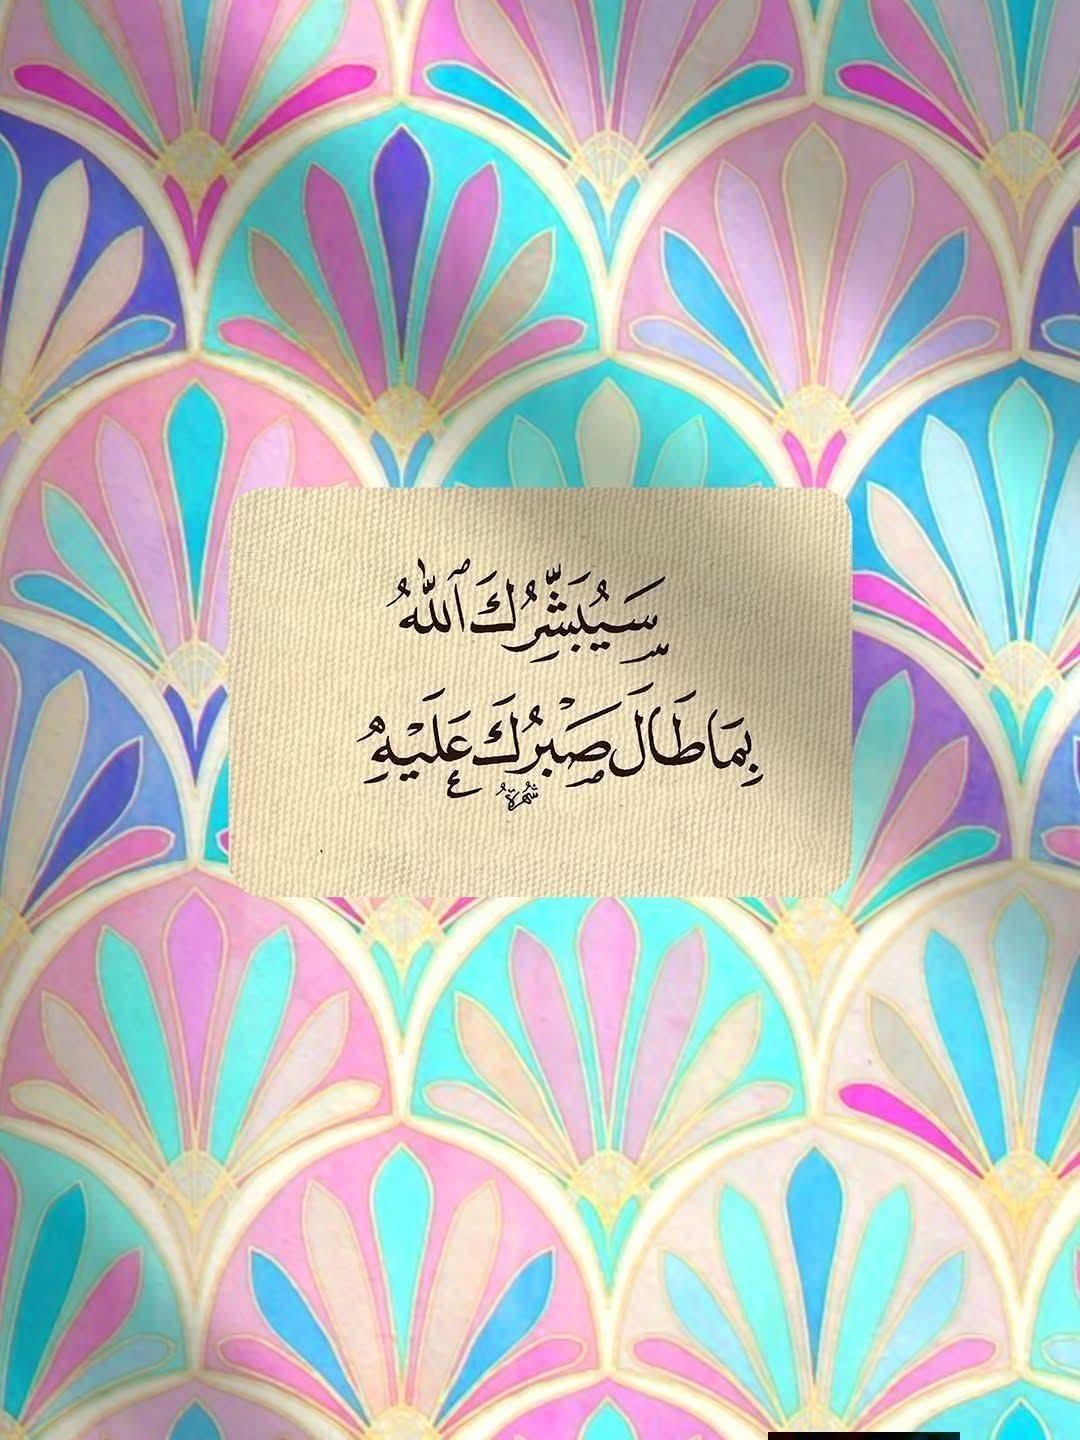 سَيُبَشِّرُكَ ٱللَّهُ
بِمَا طَالَ صَبْرُكَ عَلَيْهِ